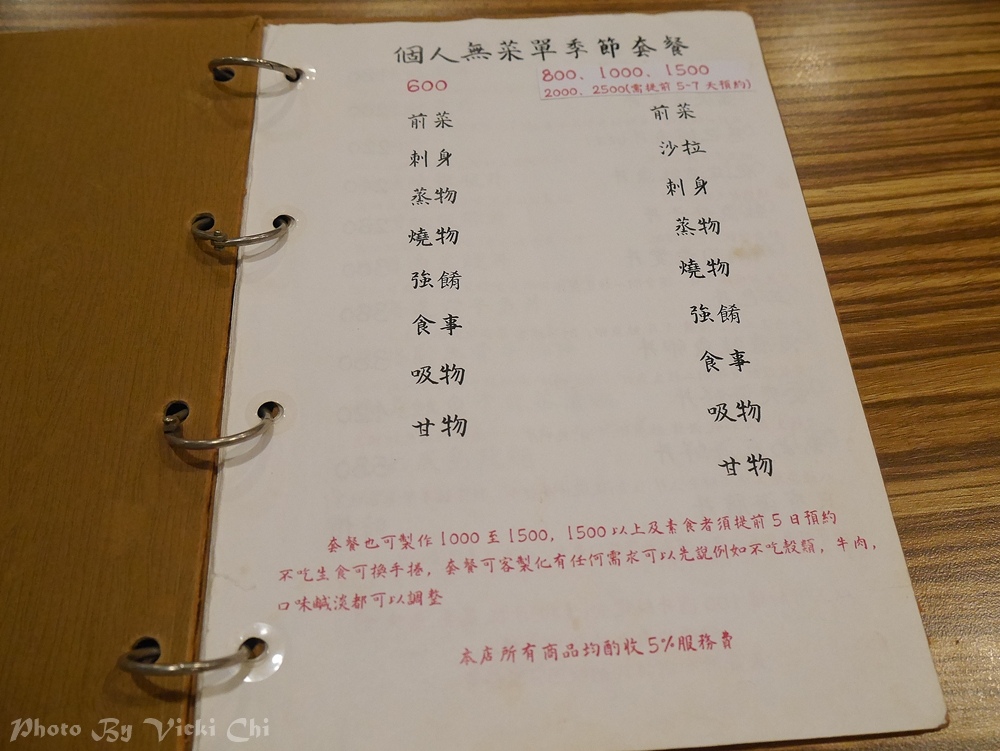 個人無菜單季節套餐
600
前菜
刺身
蒸物
燒物
強餚
食事
吸物
甘物
800、1000、1500
2000、2500(需提前5-7天預約)
前菜
沙拉
刺身
蒸物
燒物
強餚
食事
吸物
甘物
套餐也可製作1000至1500,1500以上及素食者須提前5日預約
不吃生食可換手捲,套餐可客製化有任何需求可以先說例如不吃穀類,牛肉,
口味鹹淡都可以調整
本店所有商品均酌收5%服務費
Photo By Vicki Chi